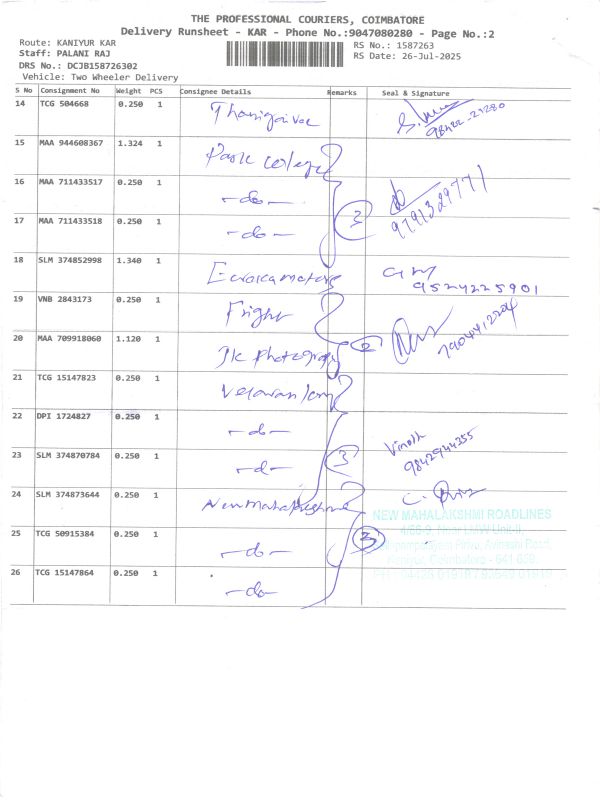 THE PROFESSIONAL COURIERS, COIMBATORE
Delivery Runsheet - KAR - Phone No.:9047080280 - Page No.:2
Route: KANIYUR KAR
RS No.: 1587263
Staff: PALANI RAJ
RS Date: 26-Jul-2025
DRS No.: DCJB158726302
Vehicle: Two Wheeler Delivery
S No Consignment No Weight PCS Consignee Details Remarks Seal & Signature
14 TCG 504668 0.250 1
15 MAA 944608367 1.324 1 Park College
16 MAA 711433517 0.250 1 -do-
9791329771
17 MAA 711433518 0.250 1 -do- 3
18 SLM 374852998 1.340 1
9524225901
19 VNB 2843173 0.250 1
20 MAA 709918060 1.120 1 JK Photography 2
21 TCG 15147823 0.250 1
22 DPI 1724827 0.250 1 -do-
Vinoth
9842944355
23 SLM 374870784 0.250 1 -do- 3
24 SLM 374873644 0.250 1 New Mahalakshmi
NEW MAHALAKSHMI ROADLINES
25 TCG 50915384 0.250 1 -do- 3
26 TCG 15147864 0.250 1 -do-